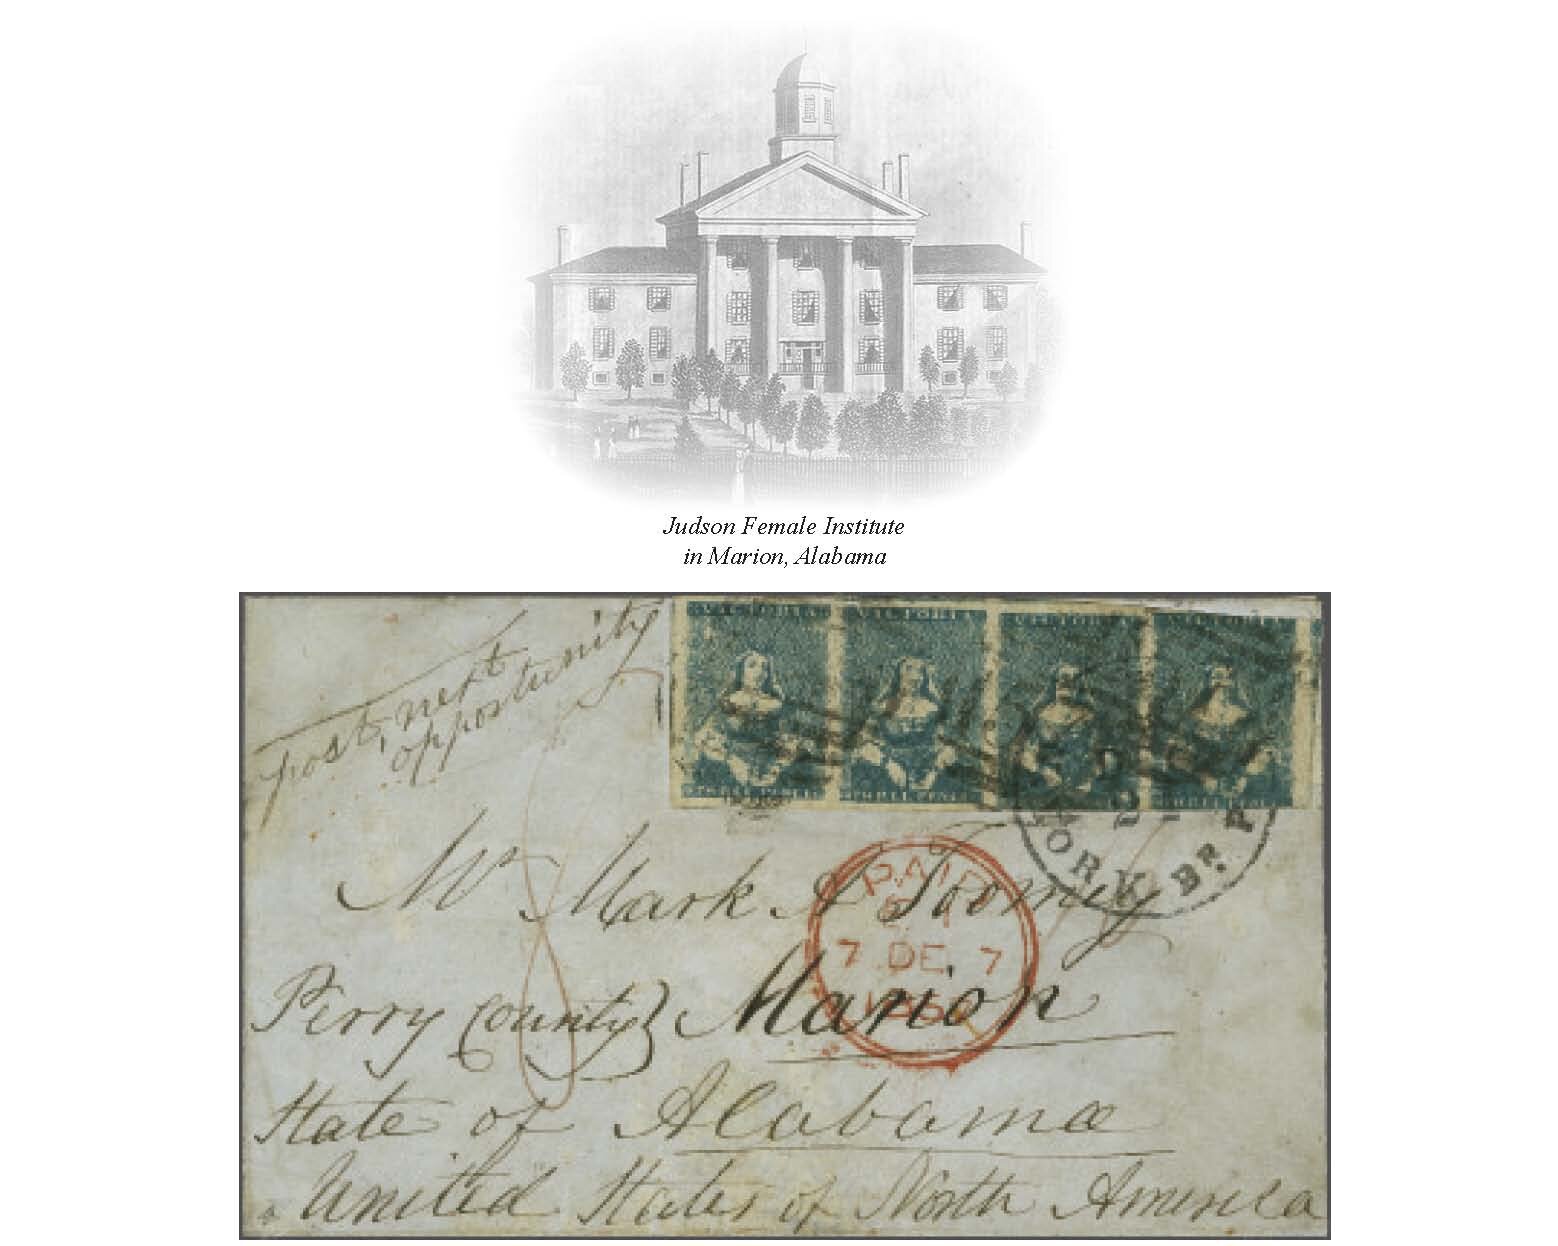 Judson Female Institute
in Marion, Alabama
post, next
opportunity
VICTORIA VICTORIA VICTORIA VICTORIA
PAID
7 DE 7
ORK BR. P
Mr Mark A Toomey
Perry County Marion
State of Alabama
United States of North America